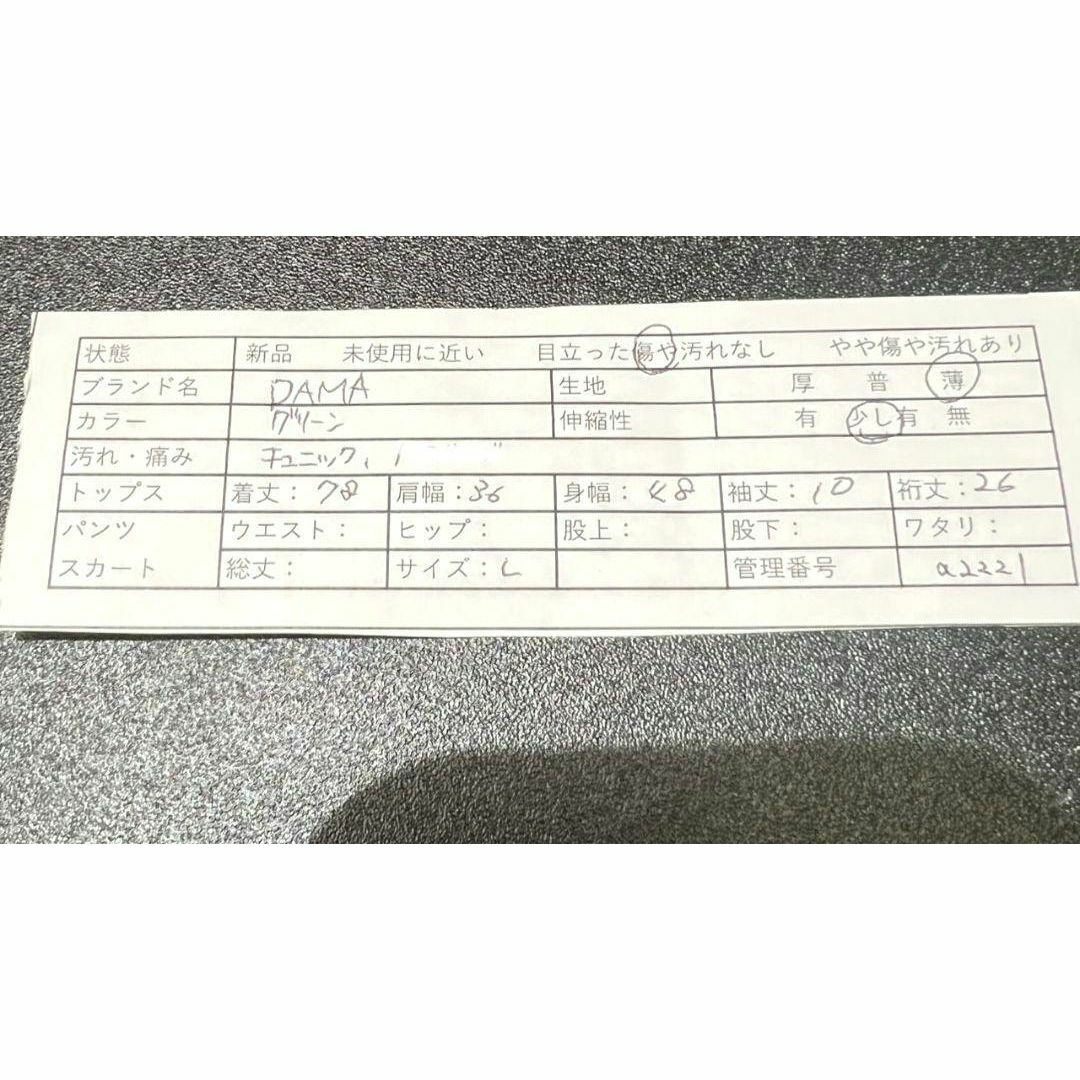 状態 新品 未使用に近い 目立った傷や汚れなし やや傷や汚れあり
ブランド名 DAMA 生地 厚 普 薄
カラー グリーン 伸縮性 有 少し有 無
汚れ・痛み チュニック、
トップス 着丈：78 肩幅：36 身幅：48 袖丈：10 裄丈：26
パンツ ウエスト： ヒップ： 股上： 股下： ワタリ：
スカート 総丈： サイズ：L 管理番号 a2221